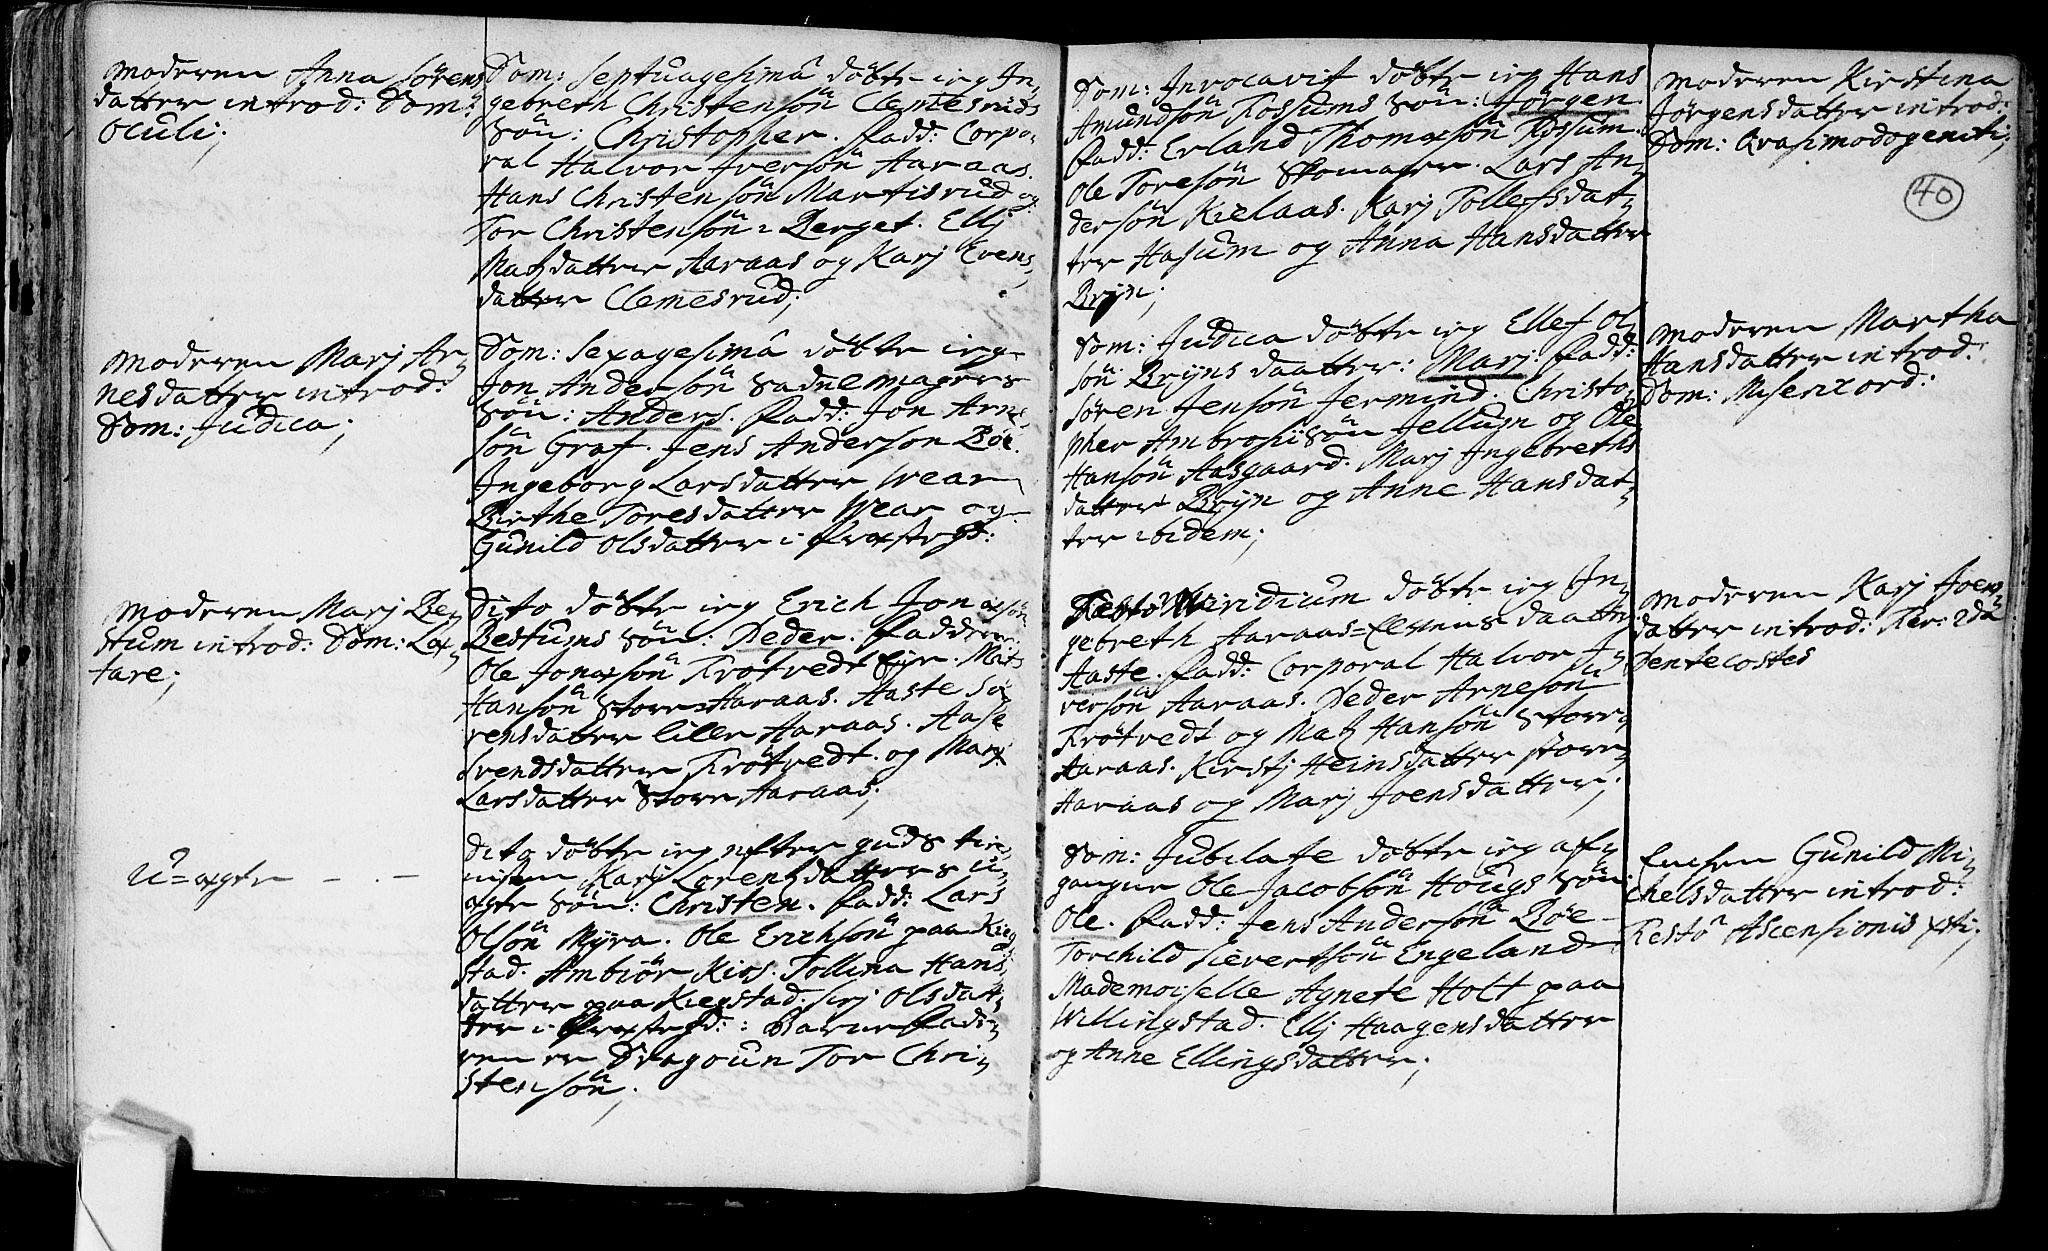 Moderen Anna Sörens
datter introd: Dom:
Oculi;
Moderen Marj Ar¬
nesdatter introd:
Dom: Judica;
Moderen Marj Be¬
stum introd: Dom: Læ¬
tare;
U=ægte – . –
Dom: Septuagesima döbte ieg In¬
gebreth Christensön Clemesruds
Sön: Christopher. Fadd: Corpo¬
ral Halvor Iversön Aaraas.
Hans Christensön Martisrud og
Tor Christensön i Berget. Ellj
Matzdatter Aaraas og Karj Evens¬
datter Clemesrud;
Dom: Sexagesima döbte ieg
Jon Andersön Sadelmagers
Sön: Anders. Fadd: Jon Arne
sön Graf. Jens Anderson Böe.
Ingeborg Larsdatter Wear
Birthe Toresdatter Wear og
Gunild Olsdatter i Præstegd:
Dito döbte ieg Erich Jonæsön
Bestums Sön: Peder. Faddere
Ole Jonæsön Frötvedt Eyer. Mats
Hansön Store Aaraas. Aaste Sö
rensdatter lille Aaraas. Aase
Svendsdatter Frötvedt. og Marj
Larsdatter Store Aaraas;
Dito döbte ieg efter Guds tie¬
nisten Karj Lorentzdatters u¬
ægte Sön: Christen. Fadd: Lars
Olsön Myra. Ole Erichsön paa Kieg
stad. Ambiör Kios. Tollina Hans
datter paa Kiegstad. Sirj Olsdat¬
ter i Præstegd: Barne Fade¬
ren er Dragoun Tor Chri¬
stensön;
Dom: Invocavit döbte ieg Hans
Amundsön Fossums Sön: Jörgen
Fadd: Erland Thomæsön Fossum.
Ole Toresön Skomager. Lars An¬
dersön Kielaas. Karj Tollefsdat¬
ter Hasum og Anna Hansdatter
Bryn;
Dom: Judica döbte ieg Ellef Ol¬
sön Bryns daatter: Marj. Fadd:
Sören Jensön Jermind. Christo¬
pher Ambrosiisön Jellum og Ole
Hansön Aasgaard. Marj Ingebreths
datter Bryn og Anne Hansdat¬
ter ibidem;
Festo Viridium döbte ieg In¬
gebreth Aaraas=Eyernes daatter
Aaste. Fadd: Corporal Halvor I¬
versön Aaraas. Peder Arnesön
Frötvedt og Matz Hansön Store
Aaraas. Kirstj Heinsdatter Store
Aaraas og Marj Joensdatter;
Dom: Jubilate döbte ieg af¬
gangne Ole Jacobsön Hougs Sön:
Ole. Fadd: Jens Andersön Böe
Torchild Sievertsön Engeland
Mademoiselle Agnete Holt paa
Willingstad. Ellj Haagensdatter
og Anne Ellingsdatter;
Moderen Kirstina
Jörgensdatter introd:
Dom: Qvasimodogeniti;
40
Moderen Martha
Hansdatter introd:
Dom: Misericord:
Moderen Karj Joens
datter introd: Fer: 2da
Pentecostes
Enchen Gunild Mi¬
chelsdatter introd:
Festo Ascensionis Xsti;